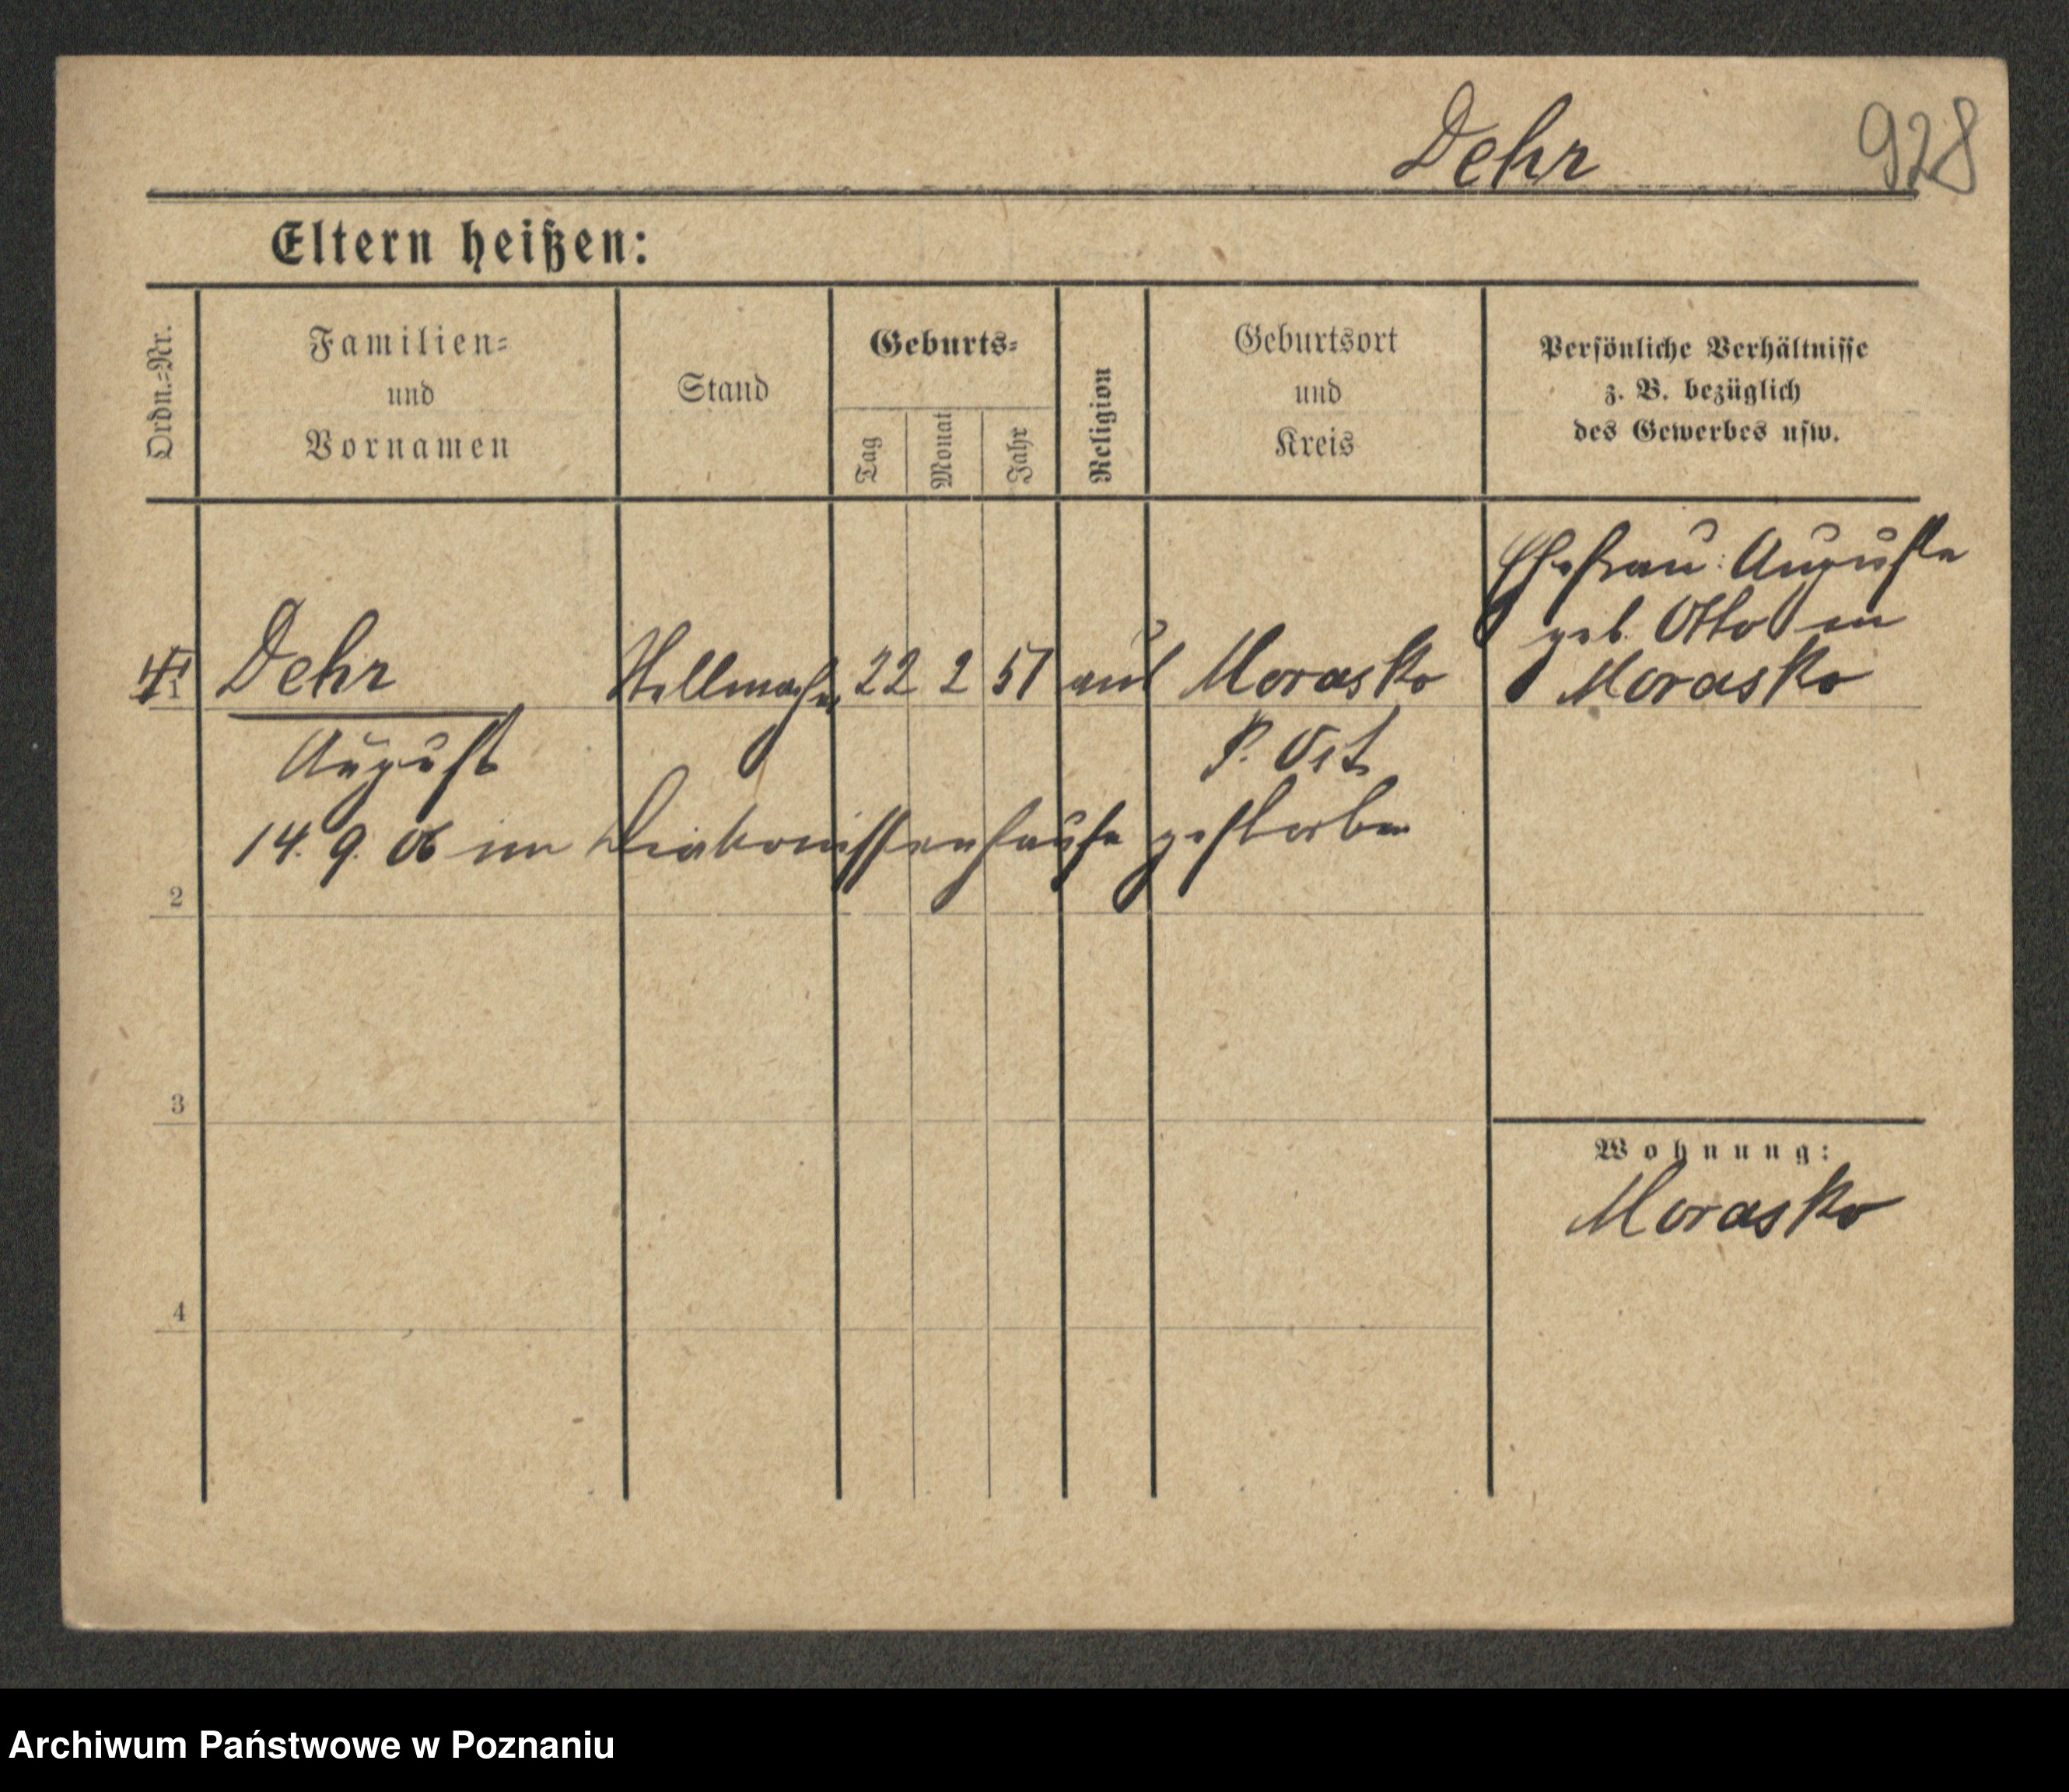 Dehr 928
Eltern heißen:
Ordn.=Nr.
Familien=
und
Vornamen
Stand
Geburts=
Tag
Monat
Jahr
Religion
Geburtsort
und
Kreis
Persönliche Verhältnisse
z. B. bezüglich
des Gewerbes usw.
Ehefrau: Auguste
geb. Otto in
Morasko
Dehr Stellmacher 22 2 51 Morasko
August P. Ost
14. 9. 06 im Diakonissenhause gestorben
2
3
Wohnung:
Morasko
4
Archiwum Państwowe w Poznaniu